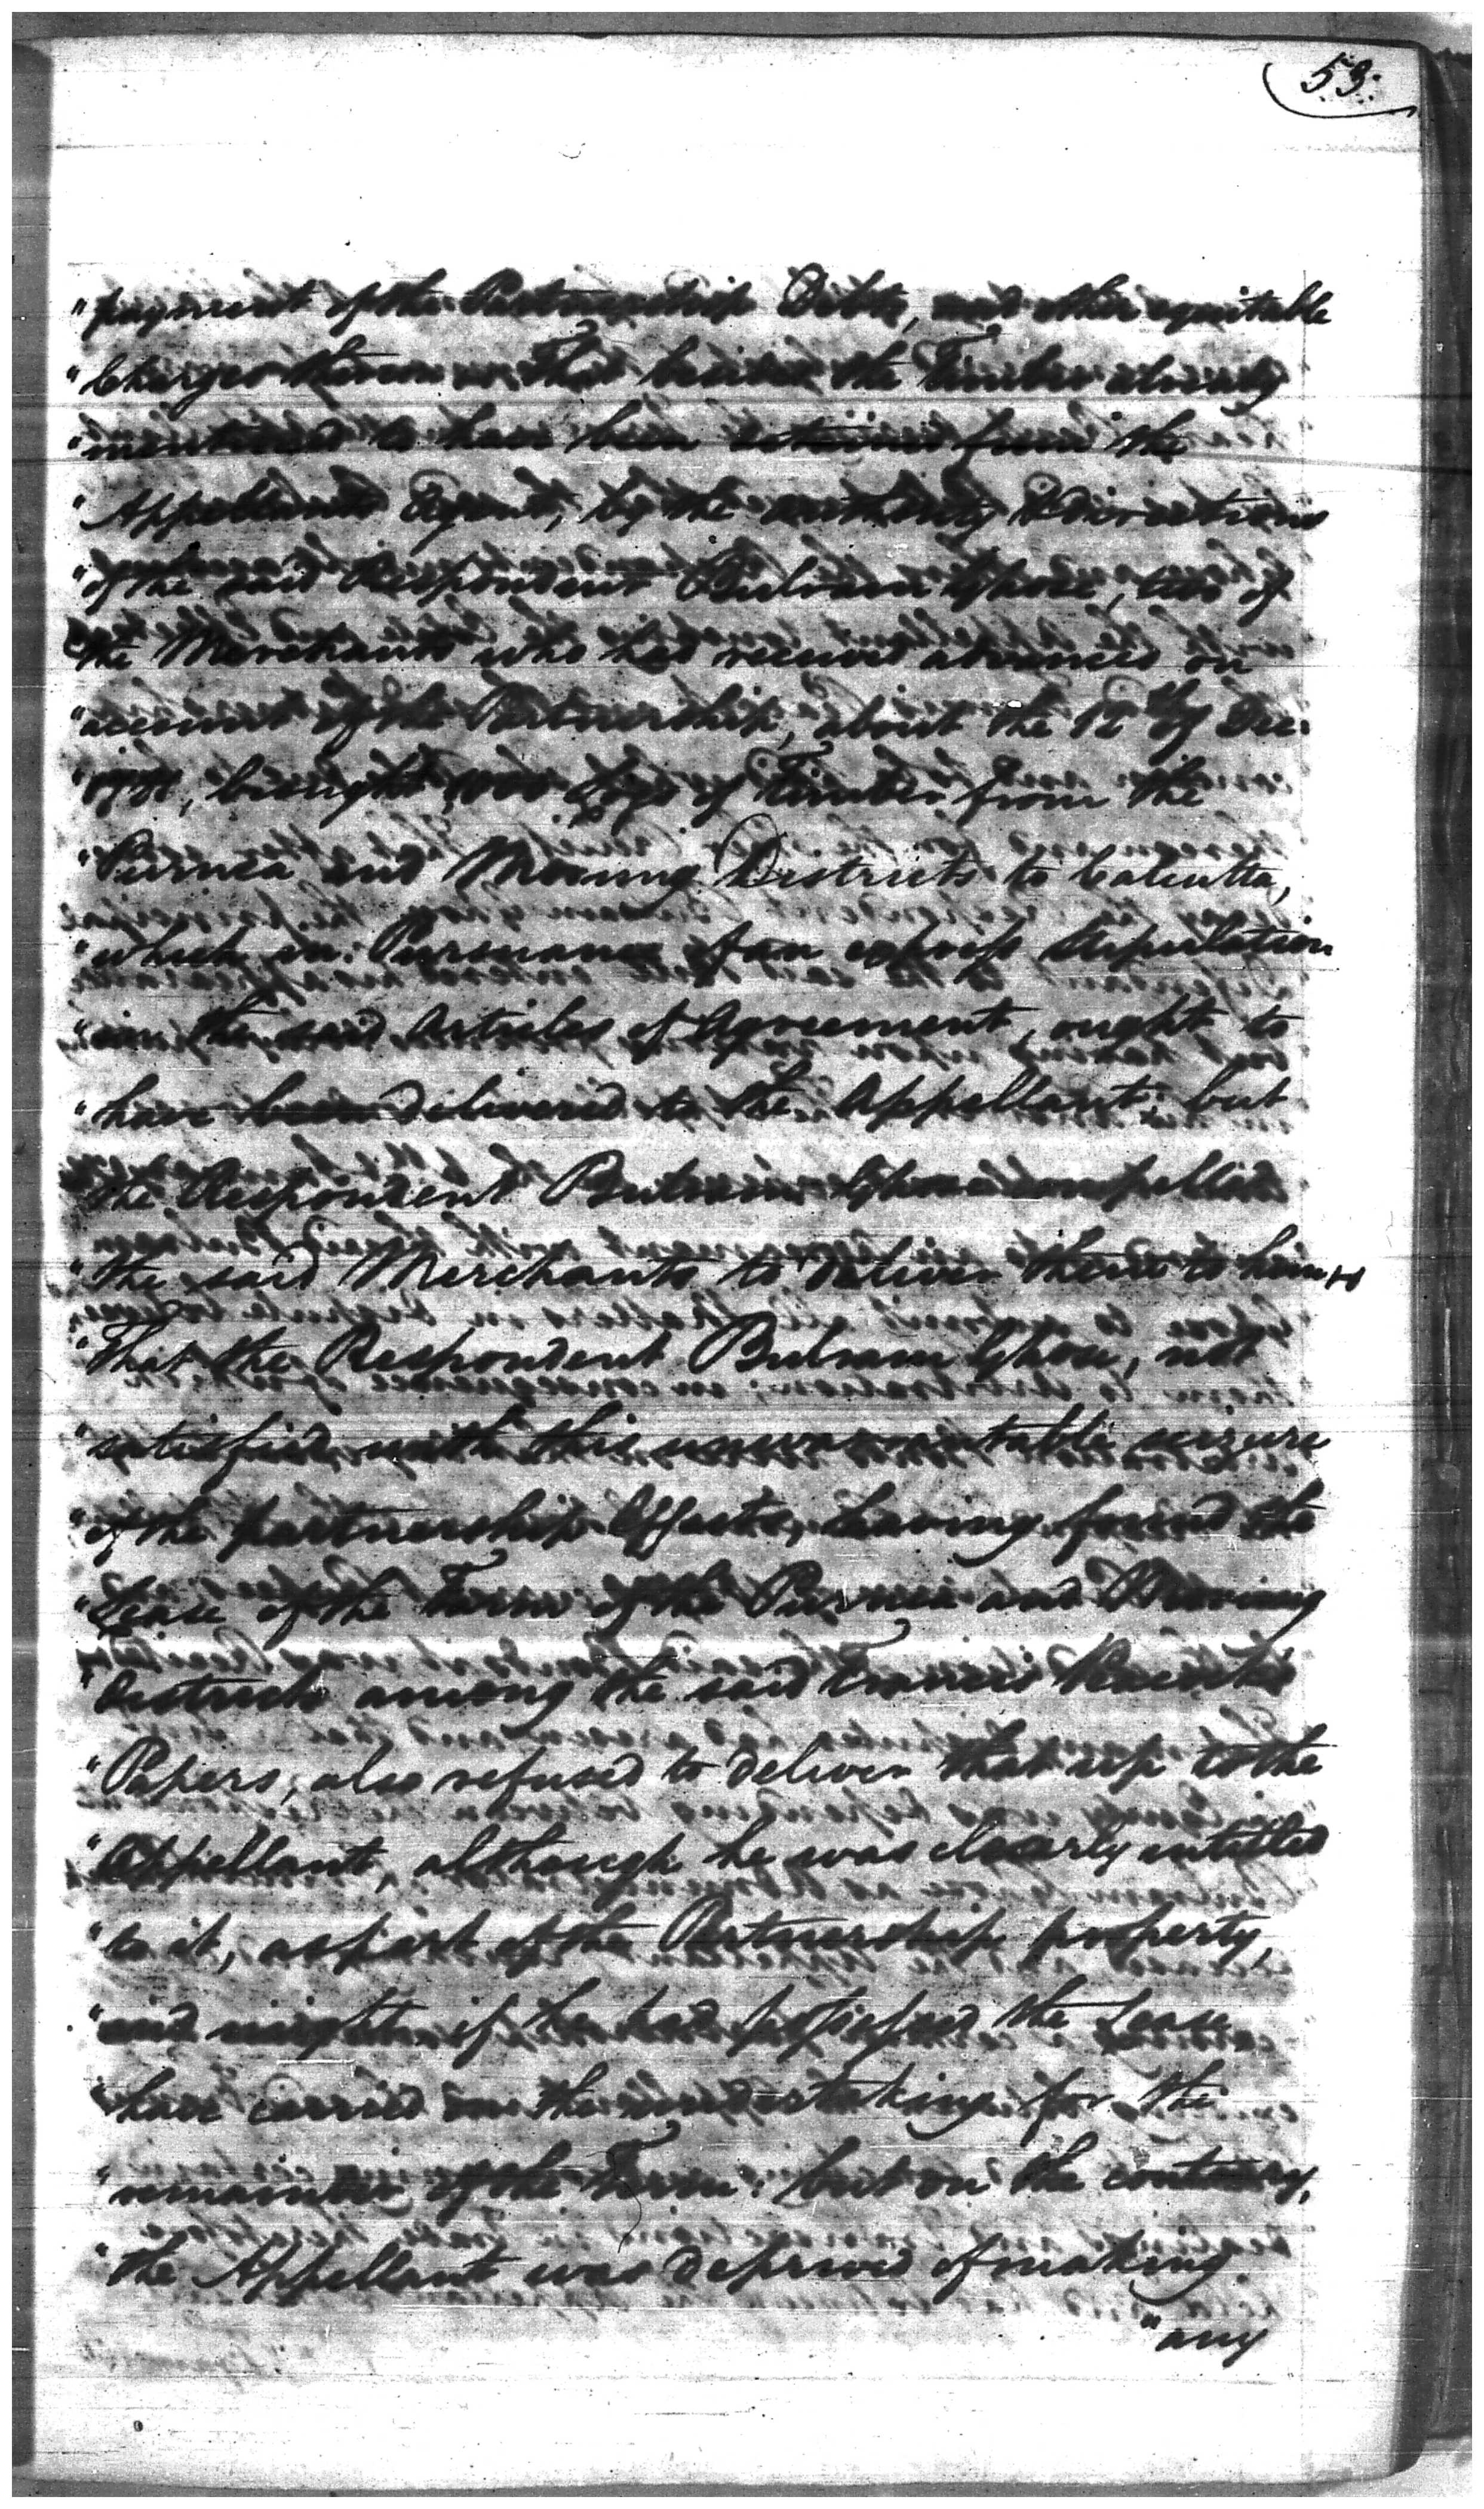 53.
"payment of the Partnership Debts, and other equitable
"Charges thereon — That besides the Timber already
"mentioned to have been detained from the
"Appellants Agent, by the authority & directions
"of the said Respondent Bulram Ghose, two of
"the Merchants who had received advances on
"account of the Partnership, about the 12th of Dec.
brought Logs of Timber from the
"Purnea and Morung Districts to Calcutta,
"which in Pursuance of an express stipulation
"in the said Articles of Agreement, ought to
"have been delivered to the Appellant; but
"the Respondent Bulram Ghose compelled
"the said Merchants to deliver them to him
"That the Respondent Bulram Ghose, not
"satisfied with this unwarrantable seizure
"of the partnership Effects, having found the
"Lease of the Farm of the Purnea and Morung
"Districts among the said Francis
"Papers, also refused to deliver that up to the
"Appellant, although he was clearly entitled
"to it, as part of the Partnership property,
"and might if he had possessed the Lease
"have carried on the undertaking for the
"remainder of the Term: but on the contrary,
"the Appellant was deprived of making
"any